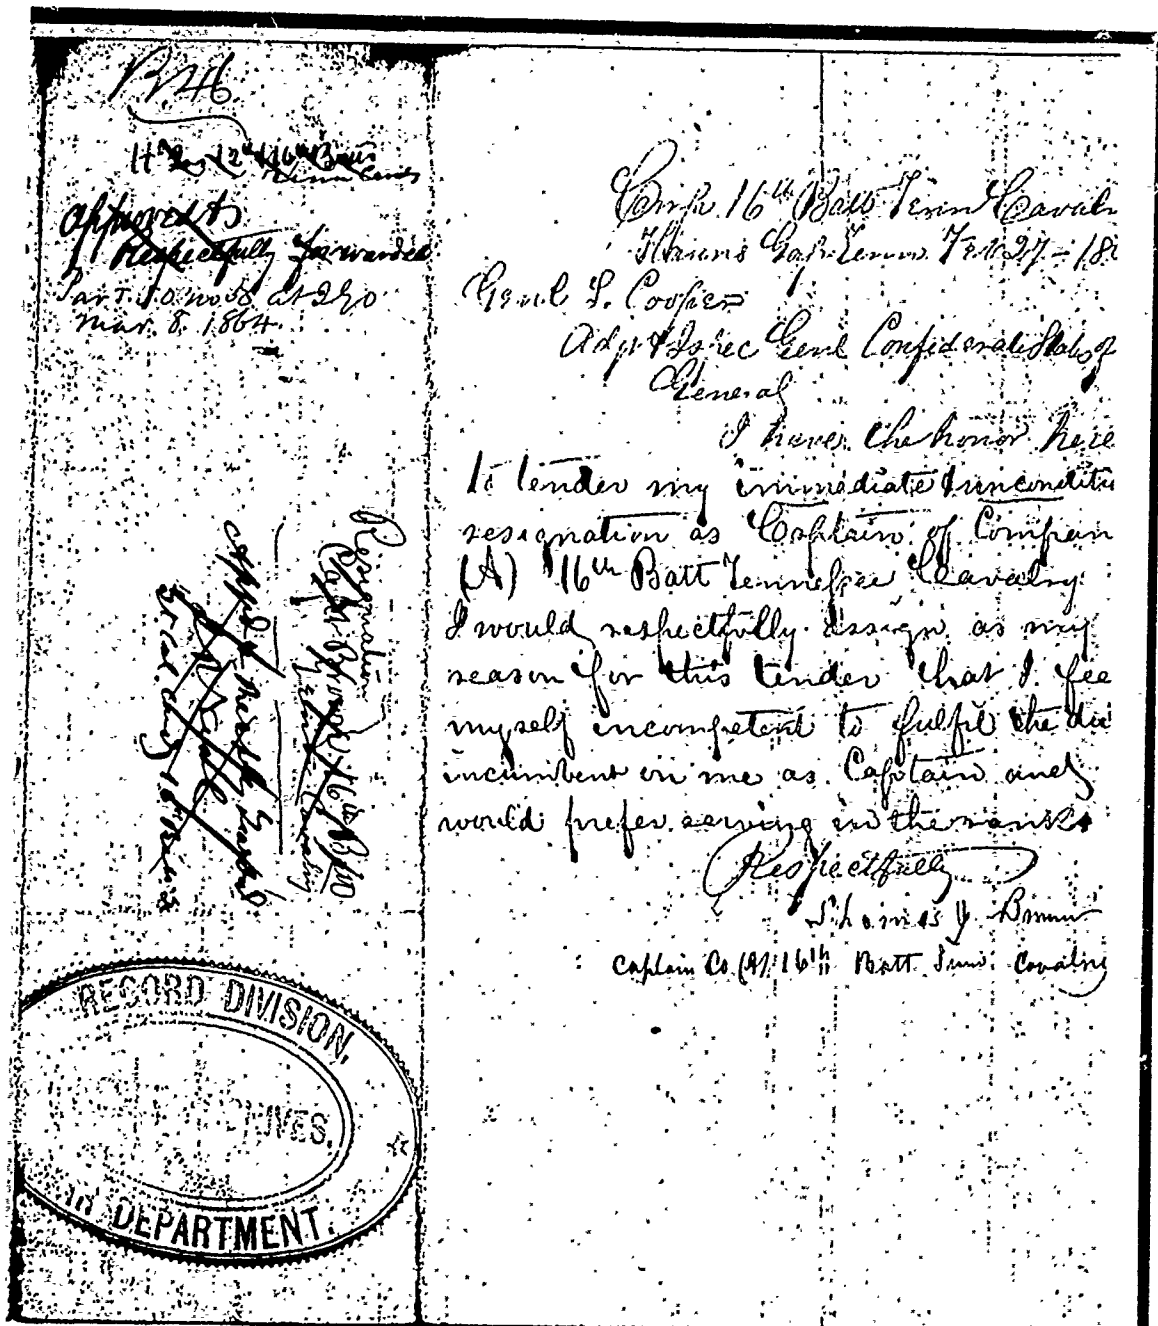 B 46
Hd Qrs 12th & 16th Batts
Tenn Cavy
Approved &
Respectfully forwarded
Par I S.O. no 8 at 290
Mar. 8. 1864
Resignation
Capt Brown 16th Batt
Tenn Cavalry
Appd & Respfly
Comdg 16th Batt
RECORD DIVISION,
ARCHIVES.
DEPARTMENT.
16th Batt Tenn Cavalr
Gap Tenn Feb 27 - 18
Genl S. Cooper
Adjt & Inspec Genl Confederate States of
General
I have the honor here
to tender my immediate & unconditi
resignation as Captain of Compan
(A) 16th Batt Tennessee Cavalry.
I would respectfully assign as my
reason for this tender that I fee
myself incompetent to fulfil the du
incumbent on me as Captain and
would prefer serving in the ranks
Respectfully
Thomas J. Brown
Captain Co. (A) 16th Batt Tenn. Cavalry